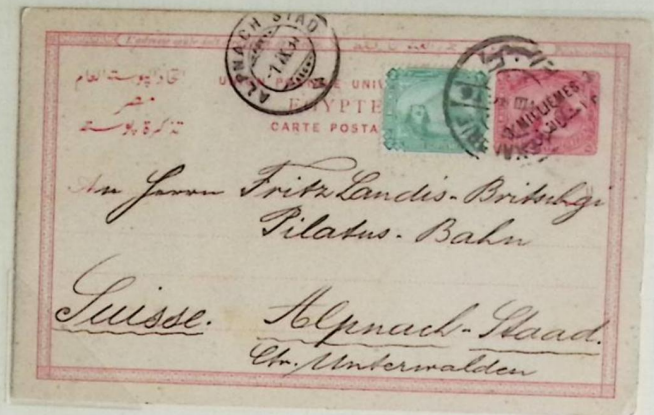 ALPNACH STAD
UNION POSTALE UNIV
EGYPTE
CARTE POSTA
اتحاد البوستة العام
مصر
تذكرة بوستة
MILLIEMES
An Herrn Fritz Landis-Britschgi
Pilatus-Bahn
Suisse. Alpnach-Staad.
Ctn. Unterwalden